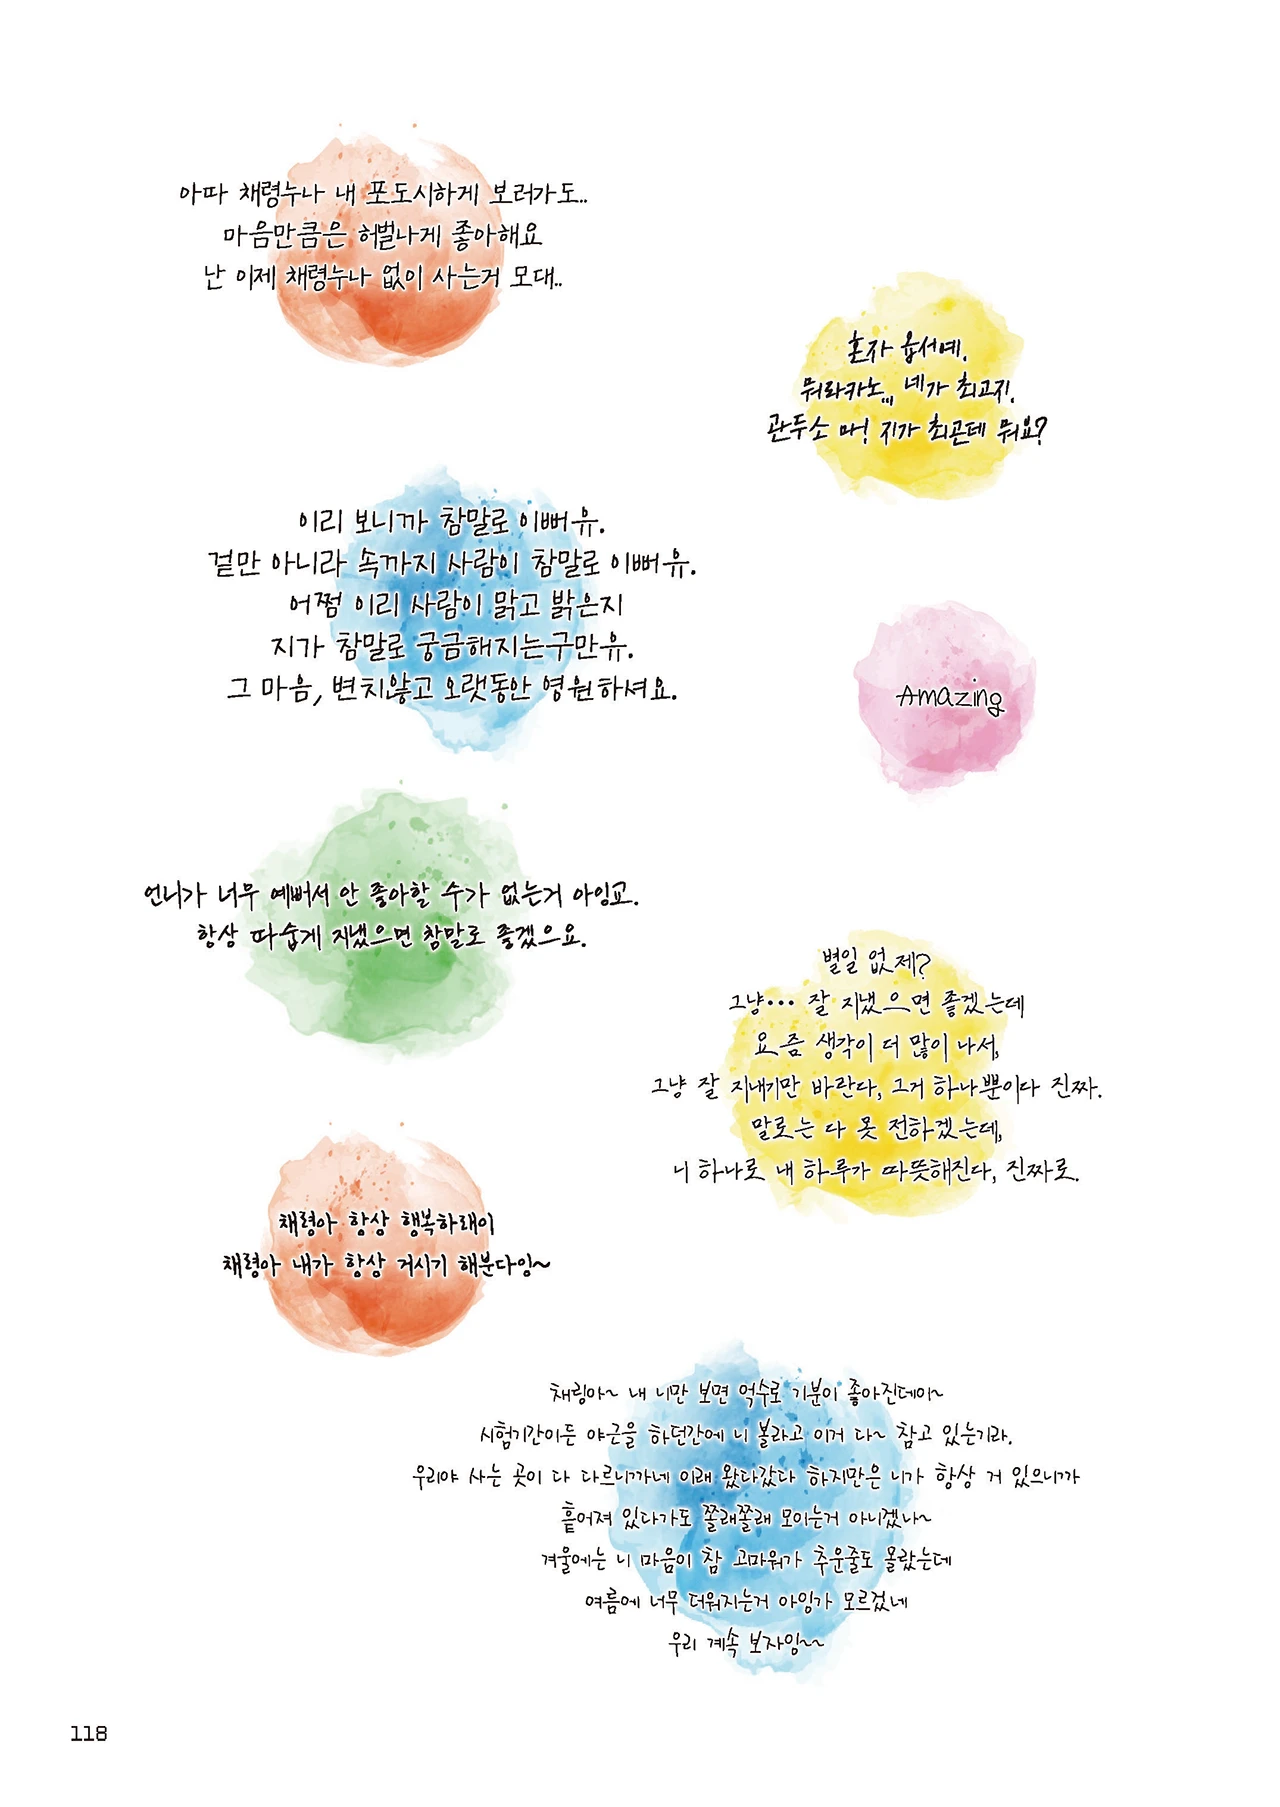 아따 채령누나 내 포도시하게 보러가도..
마음만큼은 허벌나게 좋아해요
난 이제 채령누나 없이 사는거 모대..
혼자 옵서예.
뭐라카노,,, 네가 최고지.
관두소 마! 지가 최곤데 뭐요?
이리 보니까 참말로 이뻐유.
겉만 아니라 속까지 사람이 참말로 이뻐유.
어쩜 이리 사람이 맑고 밝은지
지가 참말로 궁금해지는구만유.
그 마음, 변치않고 오랫동안 영원하셔요.
Amazing
언니가 너무 예뻐서 안 좋아할 수가 없는거 아잉교.
항상 따숩게 지냈으면 참말로 좋겠으요.
별일 없제?
그냥··· 잘 지냈으면 좋겠는데
요즘 생각이 더 많이 나서,
그냥 잘 지내기만 바란다, 그거 하나뿐이다 진짜.
말로는 다 못 전하겠는데,
니 하나로 내 하루가 따뜻해진다, 진짜로.
채령아 항상 행복하래이
채령아 내가 항상 거시기 해분다잉~
채링아~ 내 니만 보면 억수로 기분이 좋아진데이~
시험기간이든 야근을 하던간에 니 볼라고 이거 다~ 참고 있는기라.
우리야 사는 곳이 다 다르니까네 이래 왔다갔다 하지만은 니가 항상 거 있으니까
흩어져 있다가도 쫄래쫄래 모이는거 아니겠나~
겨울에는 니 마음이 참 고마워가 추운줄도 몰랐는데
여름에 너무 더워지는거 아잉가 모르겄네
우리 계속 보자잉~~
118